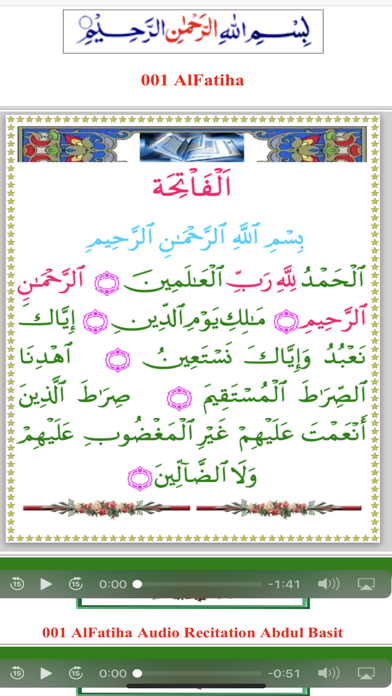 بِسْمِ اللهِ الرَّحْمٰنِ الرَّحِيْمِ
001 AlFatiha
اَلْفَاْتِحَة
بِسْمِ ٱللَّهِ ٱلرَّحْمَٰنِ ٱلرَّحِيمِ
ٱلْحَمْدُ لِلَّهِ رَبِّ ٱلْعَٰلَمِينَ ۝ ٱلرَّحْمَٰنِ
ٱلرَّحِيمِ ۝ مَٰلِكِ يَوْمِ ٱلدِّينِ ۝ إِيَّاكَ
نَعْبُدُ وَإِيَّاكَ نَسْتَعِينُ ۝ ٱهْدِنَا
ٱلصِّرَٰطَ ٱلْمُسْتَقِيمَ ۝ صِرَٰطَ ٱلَّذِينَ
أَنْعَمْتَ عَلَيْهِمْ غَيْرِ ٱلْمَغْضُوبِ عَلَيْهِمْ
وَلَا ٱلضَّآلِّينَ ۝
15 15 0:00 -1:41
001 AlFatiha Audio Recitation Abdul Basit
15 15 0:00 -0:51